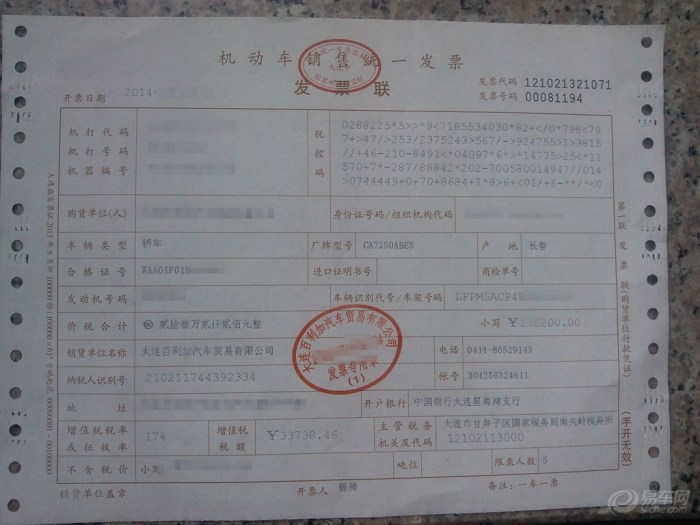 机动车销售统一发票
发票联
发票代码 121021321071
发票号码 00081194
开票日期 2014-
机打代码
机打号码
机器编号
税控码
0288225*5>>*9<7185534030*82+</0*798<79
7+>47/>253/2375243>567/->924755>1>3815
//+46-210-8491<*04097*6*>*14775>25<*11
570+7*-287/88842*202-700580014947//014
>0744449+0+70+8684+1*8>6+<01/+6-**/+<0
购货单位(人) 身份证号码/组织机构代码
车辆类型 轿车 厂牌型号 CA7250ABE5 产地 长春
合格证号 WAA01F01 进口证明书号 商检单号
发动机号码 车辆识别代号/车架号码 LFPM5ACP4
价税合计 ⊗ 贰拾叁万贰仟贰佰元整 小写 ¥ 00.00
销货单位名称 大连百利加汽车贸易有限公司 电话 0414-86529143
纳税人识别号 210211744392334 帐号 301256324611
地址 开户银行 中国银行大连星海湾支行
增值税税率或征收率 17% 增值税税额 ¥33738.46 主管税务机关及代码 大连市甘井子区国家税务局南关岭税务所
12102113000
不含税价 小写 吨位 限乘人数 5
销货单位盖章 开票人 备注:一车一票
第一联 发票联(购货单位付款凭证)
(手开无效)
大连百利加汽车贸易有限公司
发票专用章
(1)
易车网